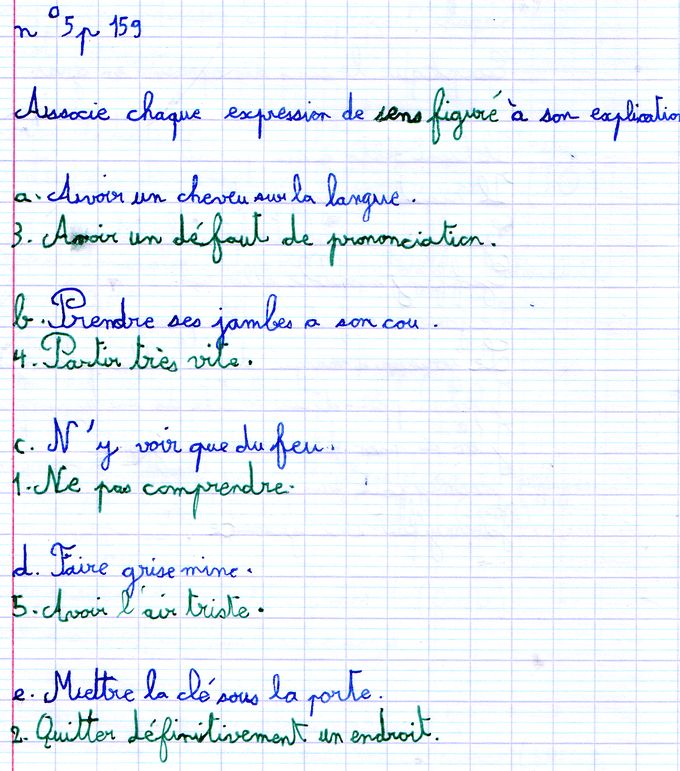 n°5 p 159
Associe chaque expression de sens figuré à son explication
a. Avoir un cheveu sur la langue.
3. Avoir un défaut de prononciation.
b. Prendre ses jambes a son cou.
4. Partir très vite.
c. N'y voir que du feu.
1. Ne pas comprendre.
d. Faire grise mine.
5. Avoir l'air triste.
e. Mettre la clé sous la porte.
2. Quitter définitivement un endroit.